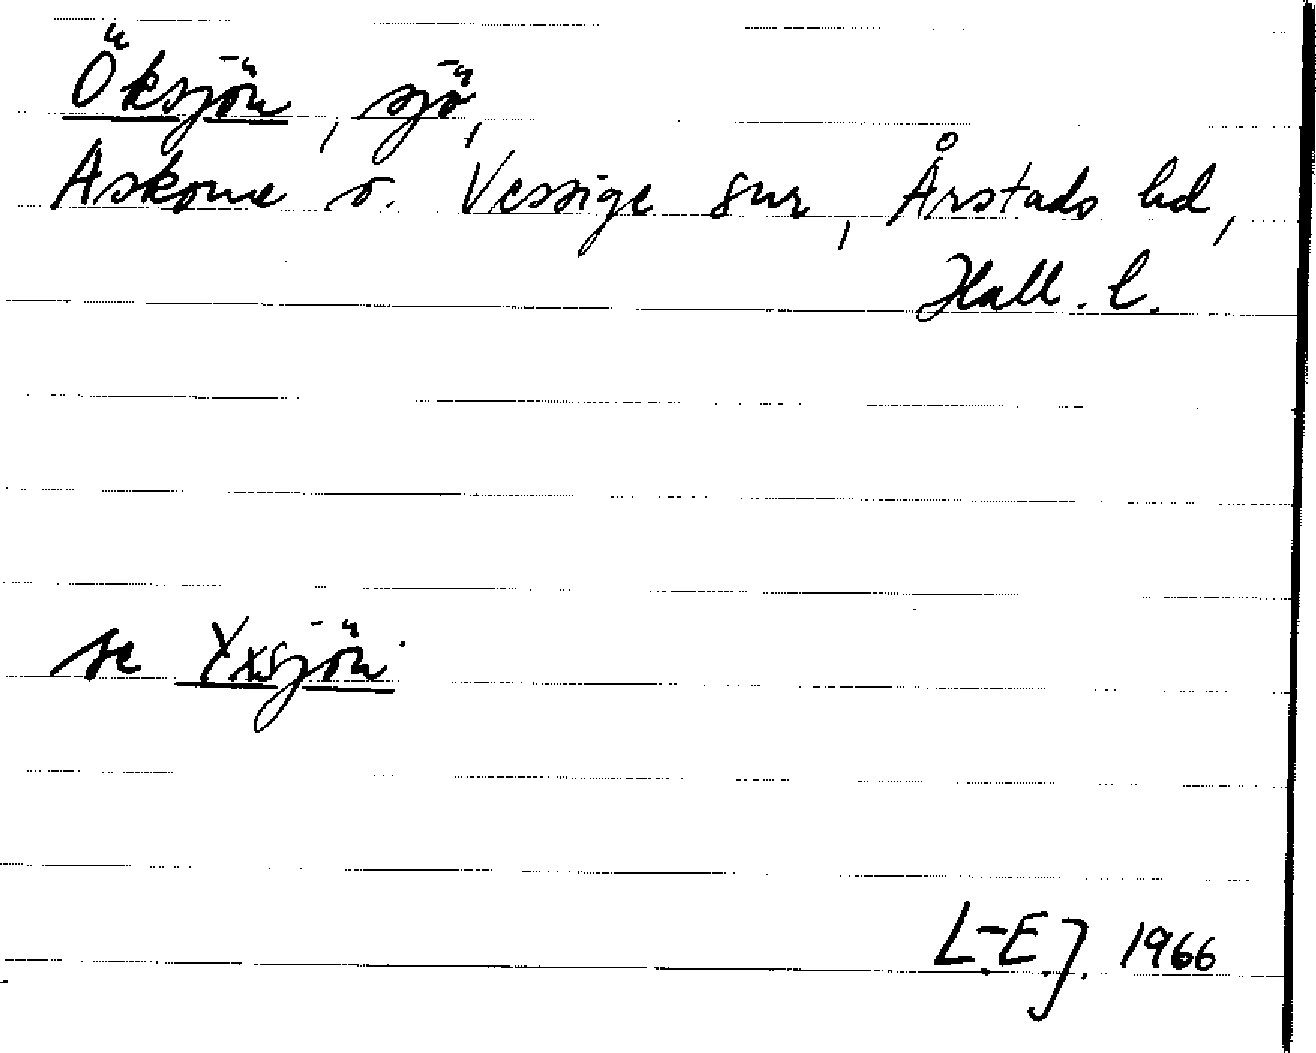 Öksjön, sjö,
Askome o. Vessige snr, Årstads hd,
Hall. l.
se Yxsjön.
L-E.J. 1966